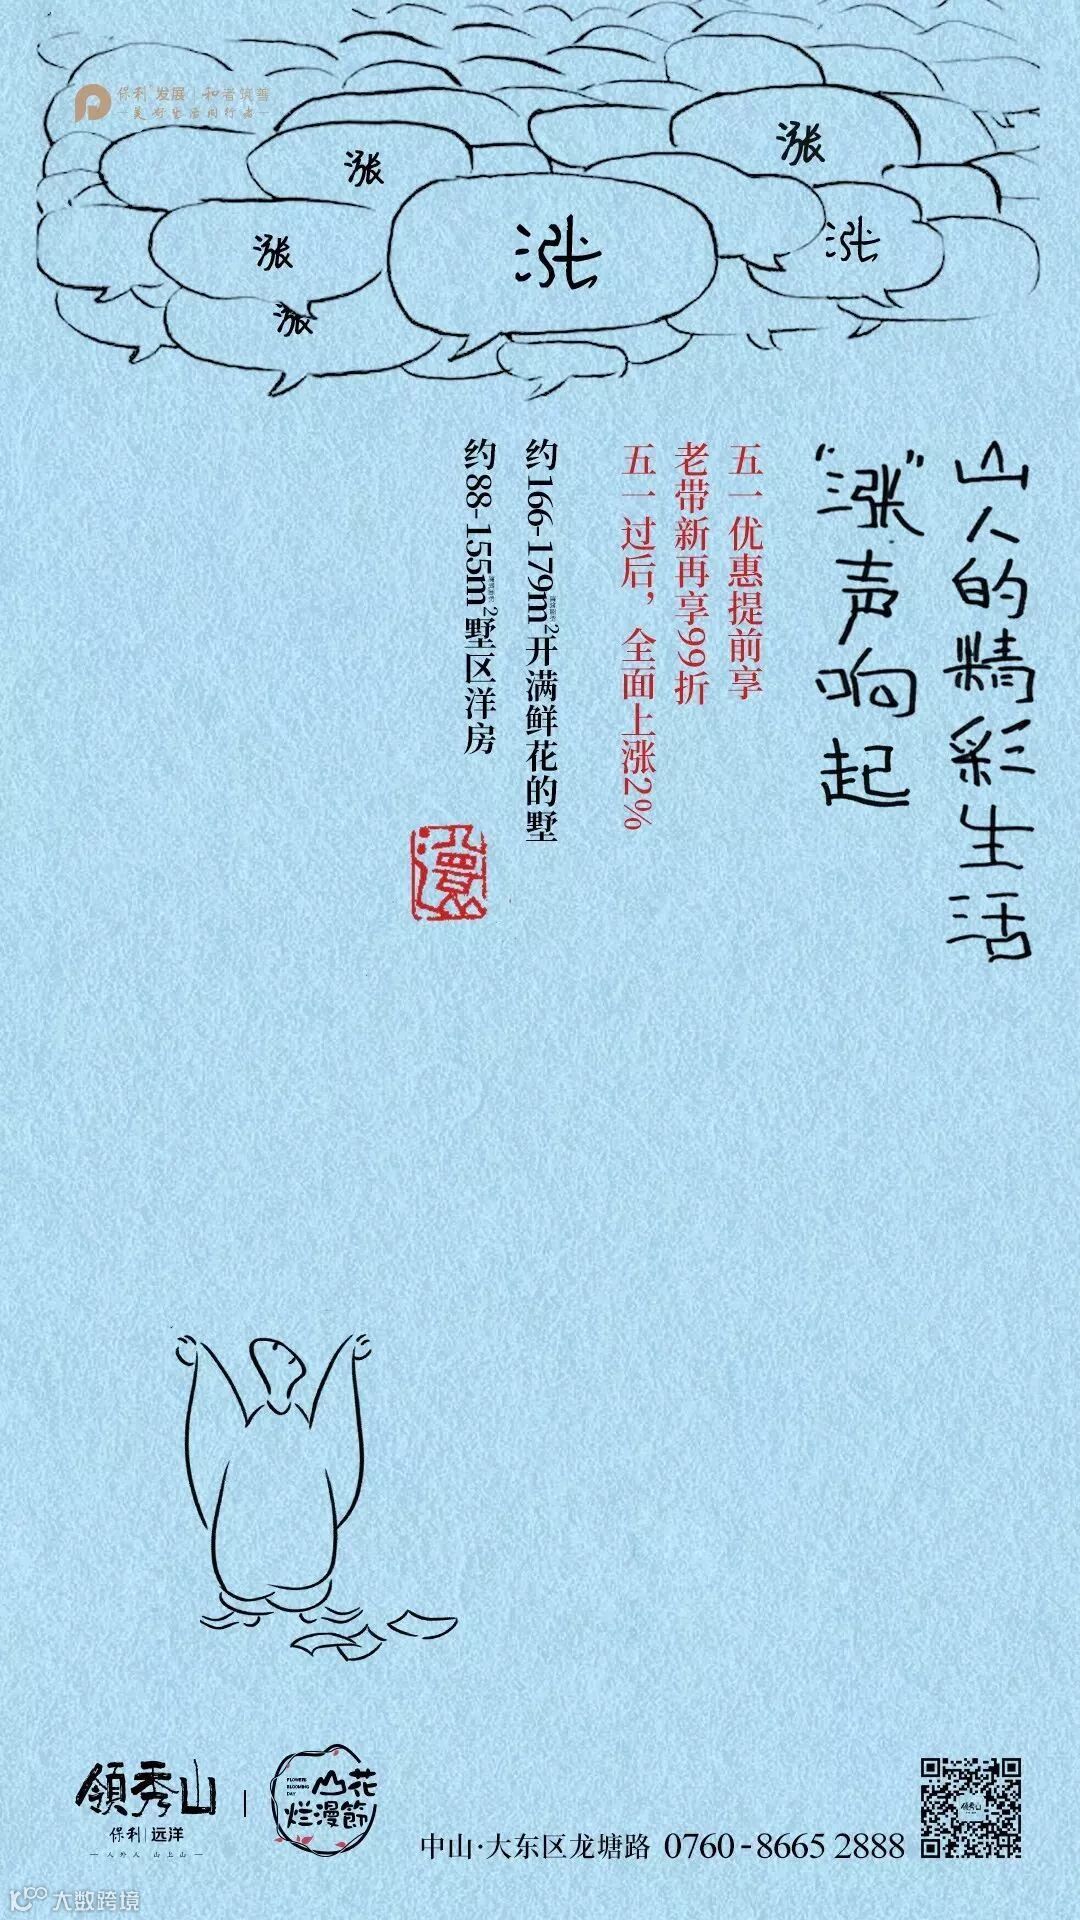 保利发展 | 和者筑善
—美好生活同行者—
涨
涨
涨
涨
涨
涨
山人的精彩生活
“涨”声响起
五一优惠提前享
老带新再享99折
五一过后，全面上涨2%
约166-179m²开满鲜花的墅
约88-155m²墅区洋房
領秀山
保利 | 远洋
—人外人 山上山—
FLOWERS
BLOOMING
DAY
山花
烂漫節
中山·大东区龙塘路 0760-8665 2888
領秀山
大数跨境